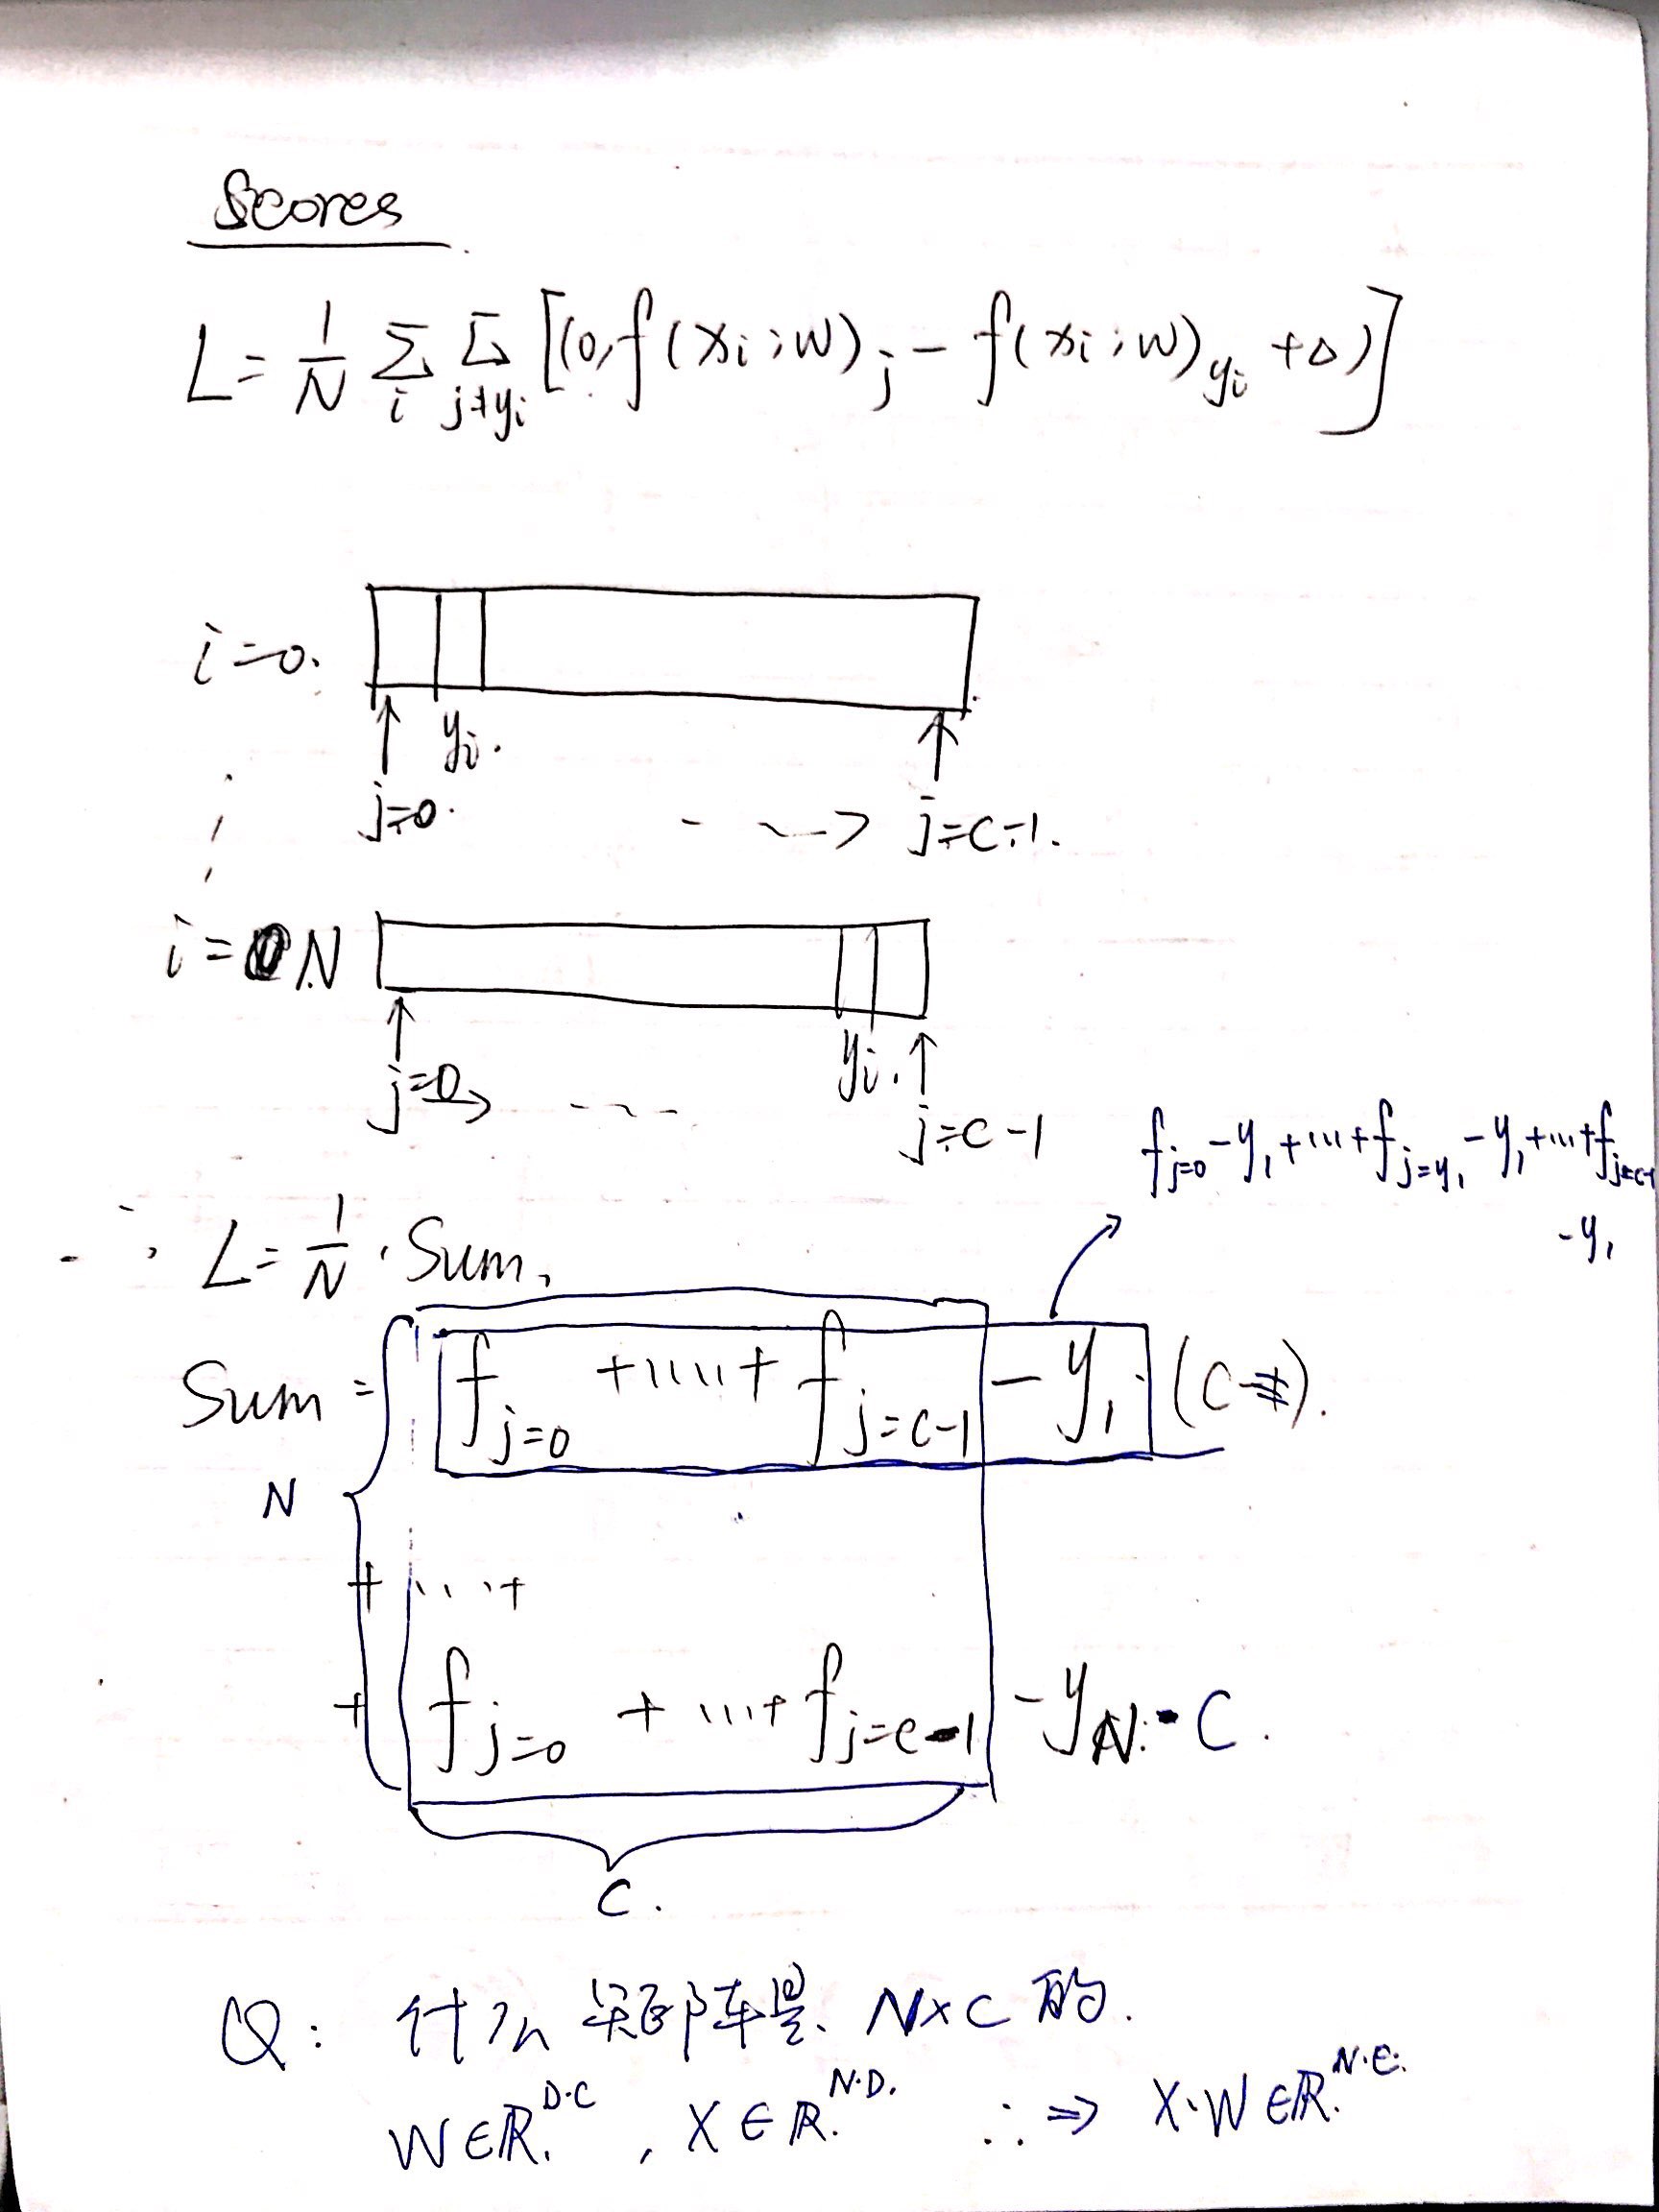 Scores
L = 1/N Σ_i Σ_{j≠y_i} [(0, f(x_i; W)_j - f(x_i; W)_{y_i} + Δ)]
i=0.
y_i.
j=0. --> j=C-1.
i=N
y_i.
j=0 → ---- j=C-1
f_{j=0} - y_1 + ... + f_{j=y_1} - y_1 + ... + f_{j=C-1}
- y_1
∴ L = 1/N · Sum,
Sum = f_{j=0} + ..... + f_{j=C-1} - y_1 · (C).
N
+ ... +
+ f_{j=0} + ... + f_{j=C-1} - y_N · C.
C.
Q: 什么矩阵是 N×C 的.
W∈R^{D·C}, X∈R^{N·D}. ∴ ⇒ X·W∈R^{N·C}.